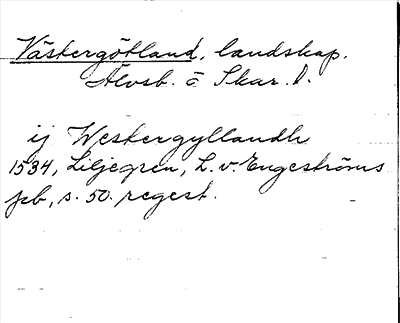 Västergötland, landskap.
Älvsb. o. Skar. l.
ij Westergyllandh
1534, Liljegren, L. v. Engeströms
pb, s. 50. regest.